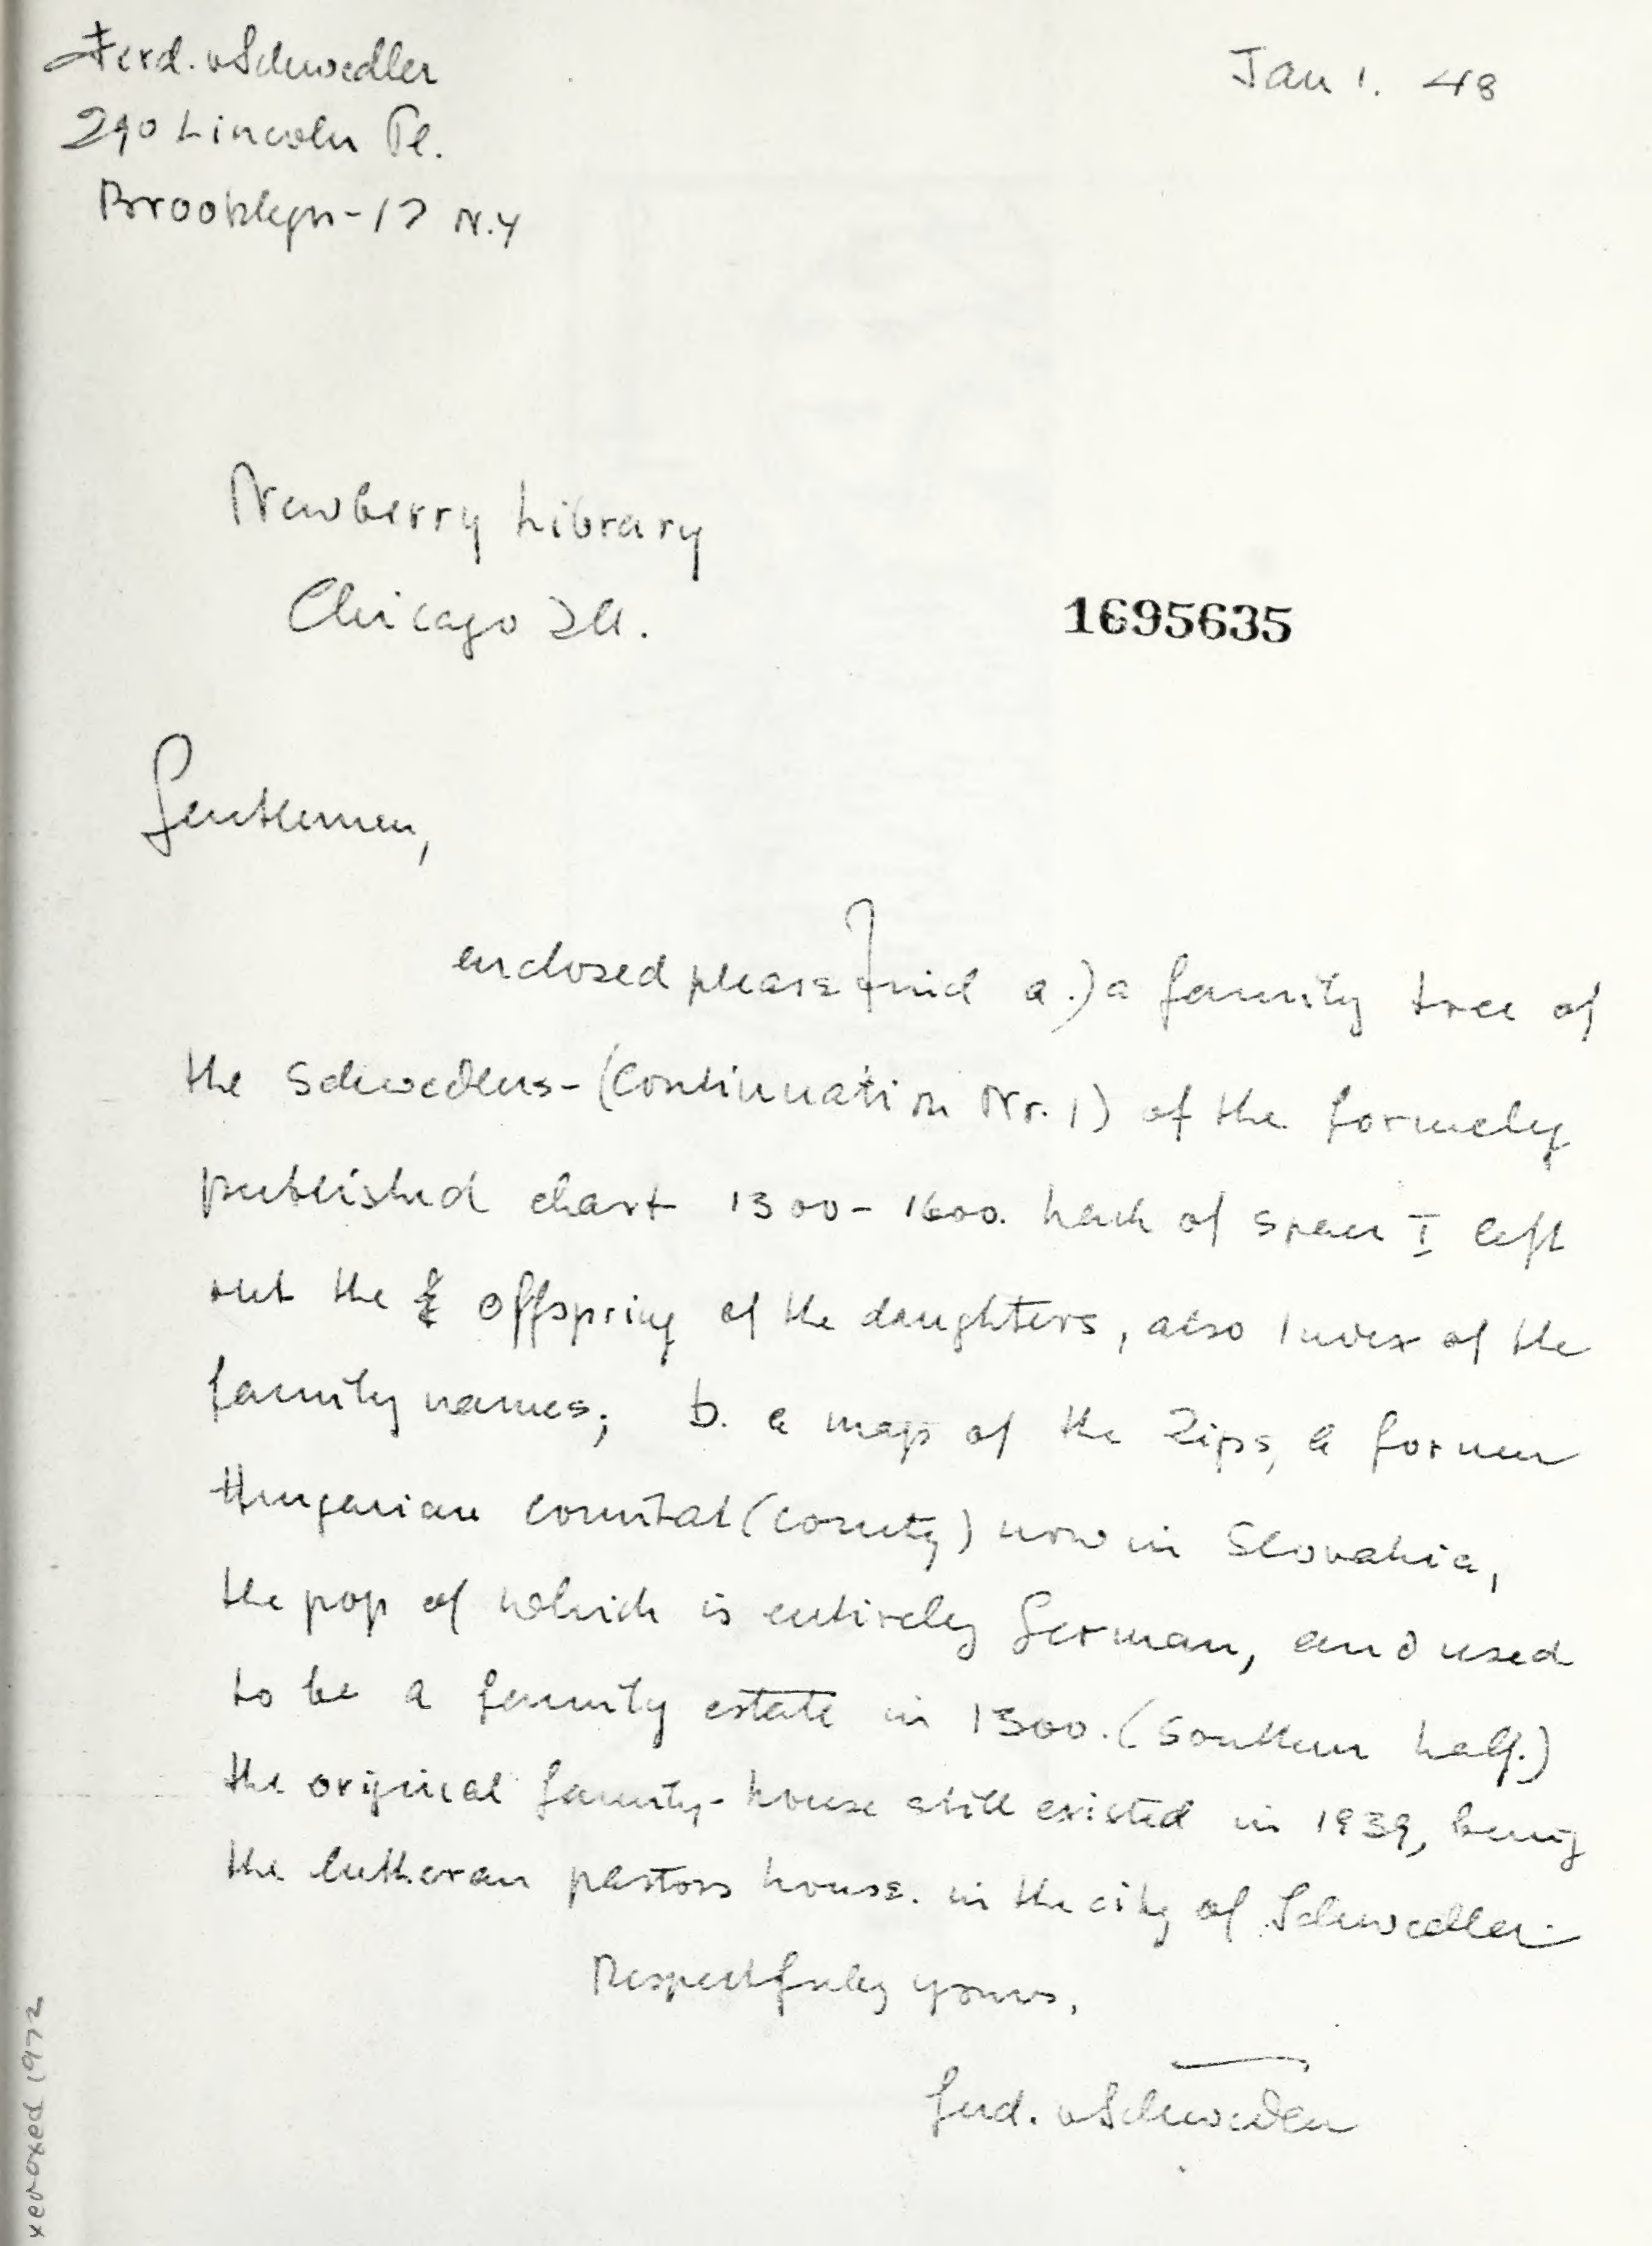 Ferd. v Schwedler
Jan 1. 48
290 Lincoln Pl.
Brooklyn-17 N.Y
Newberry Library
Chicago Ill.
1695635
Gentlemen,
enclosed please find a.) a family tree of
the Schwedlers-(Continuation Nr. 1) of the formely
published chart 1300-1600. Lack of space I left
out the offspring of the daughters, also Index of the
family names; b. a map of the Zips, a former
Hungarian comitat (county) now in Slovakia,
the pop of which is entirely German, and used
to be a family estate in 1300. (Southern half.)
the original family-house still existed in 1939, being
the lutheran pastors house. in the city of Schwedler.
Respectfully yours,
Ferd. v Schwedler
xeroxed 1972